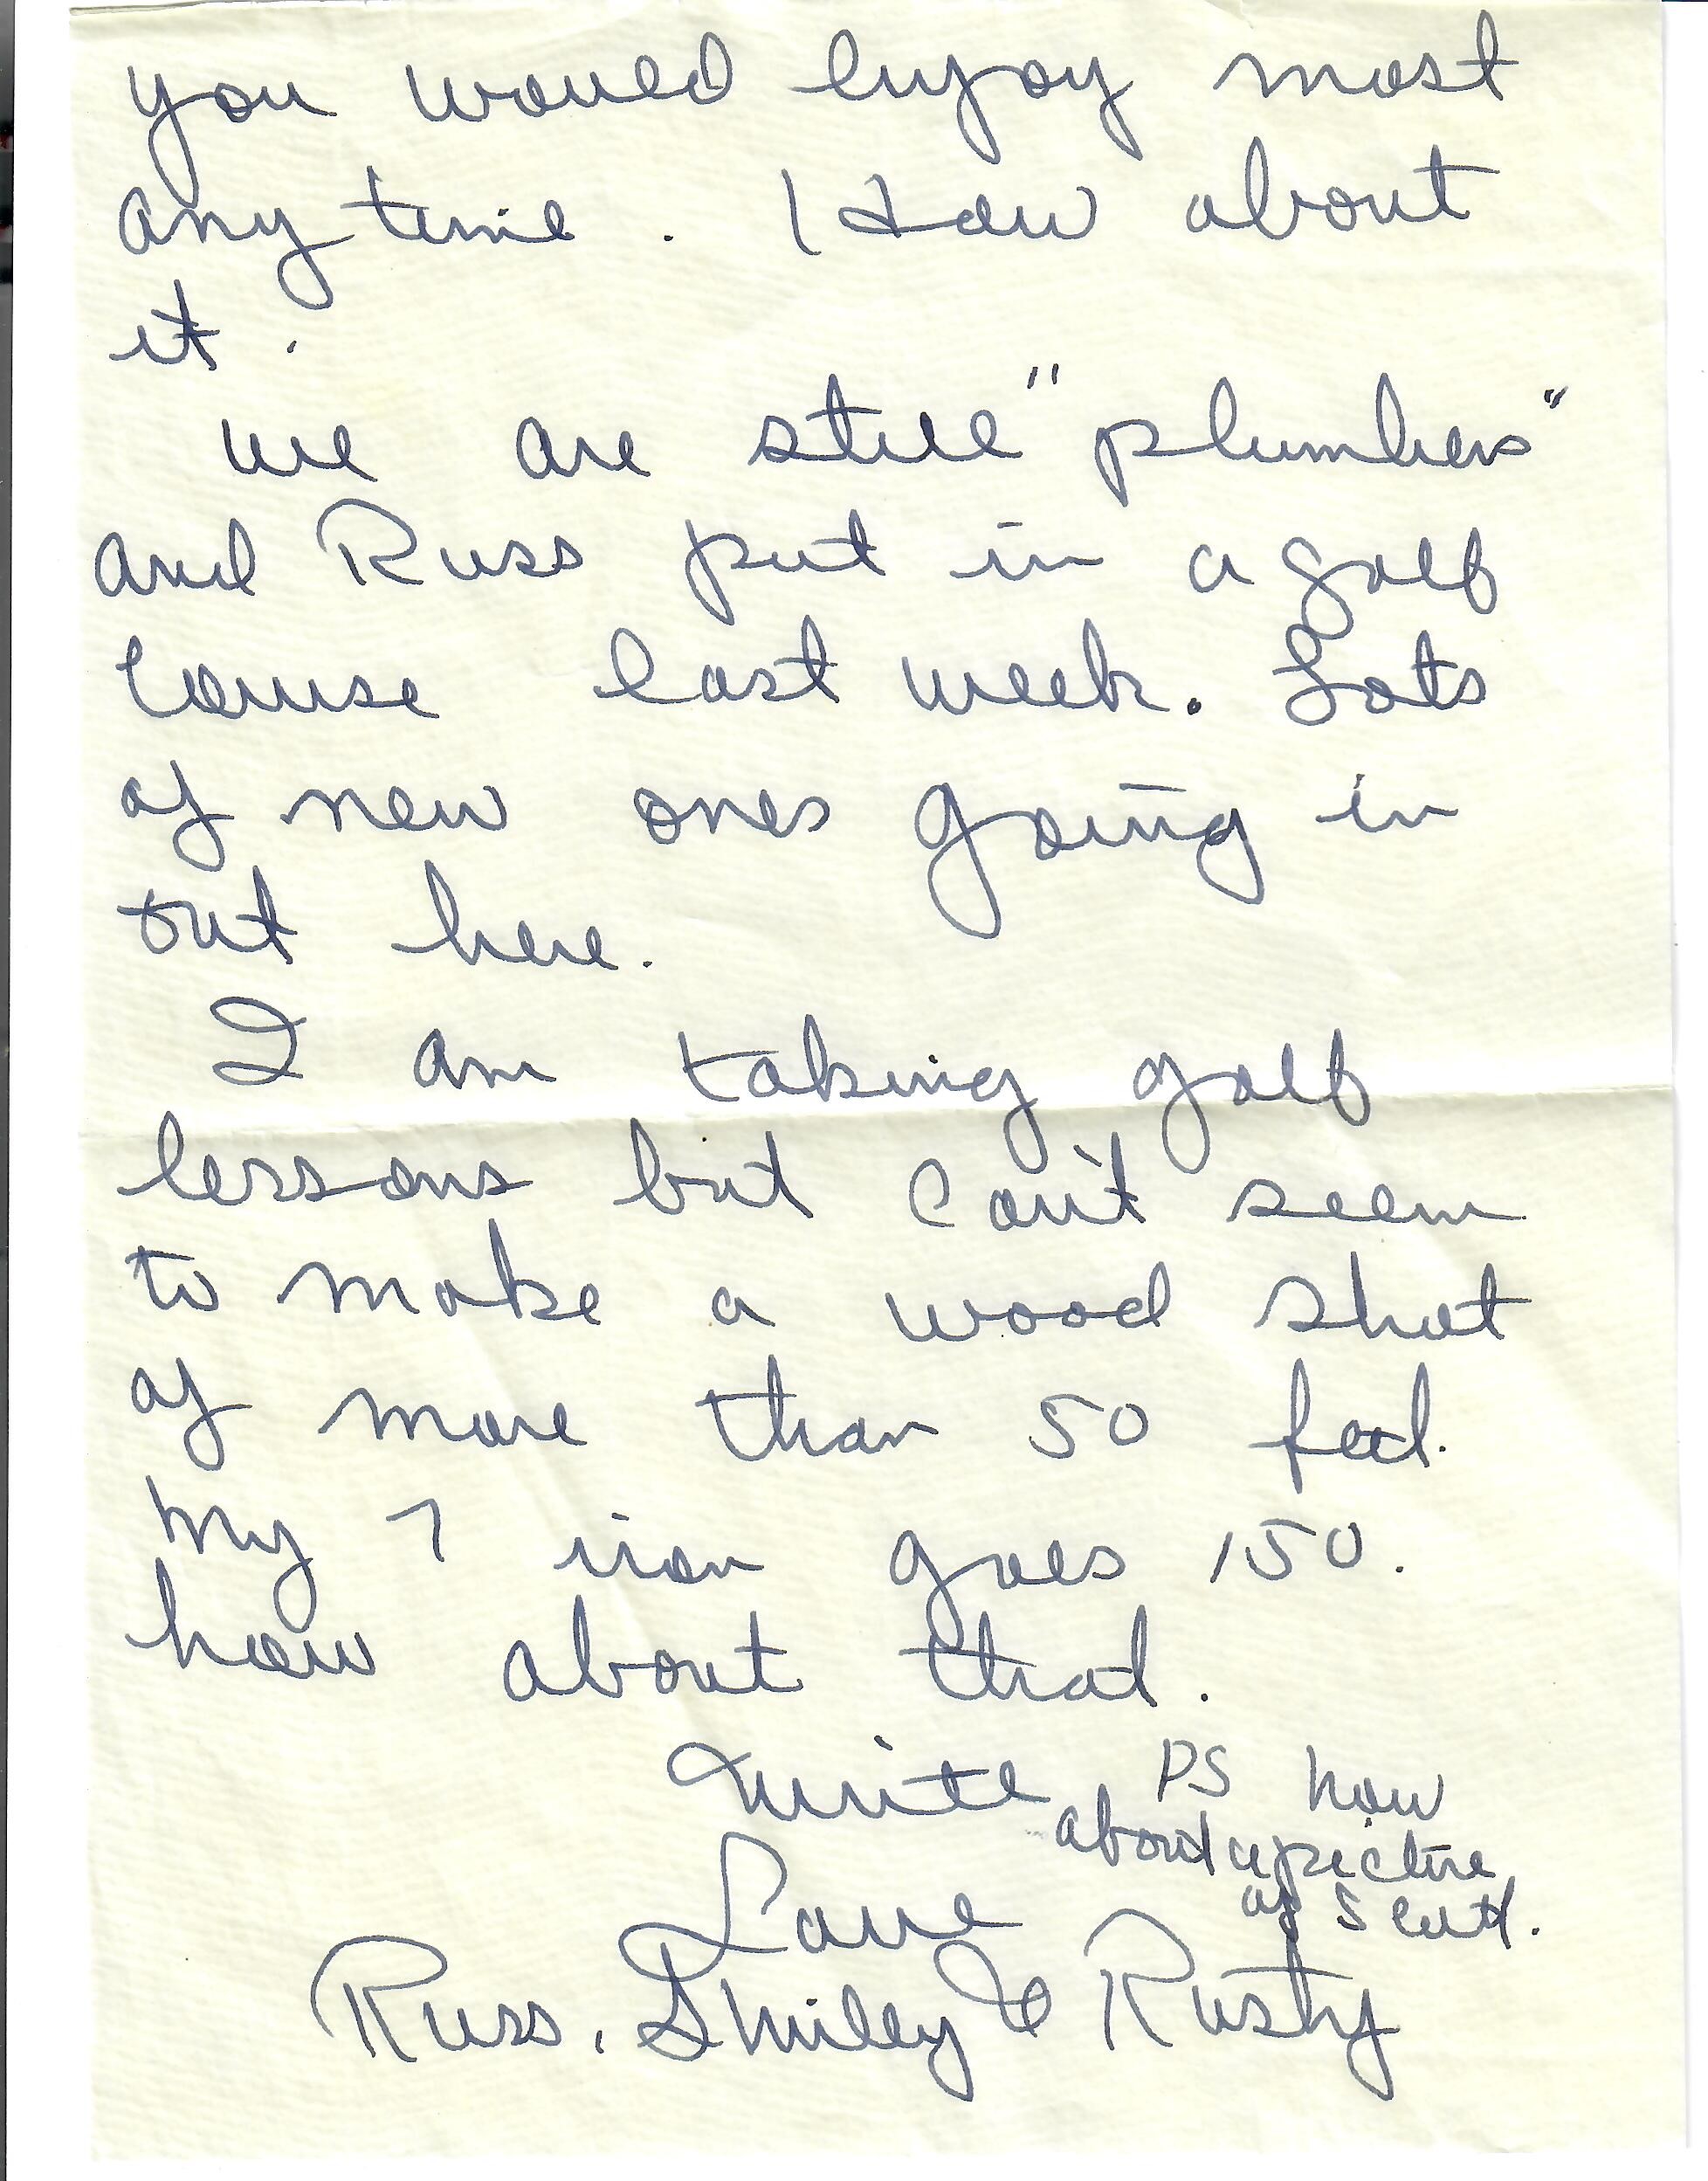 you would enjoy most
any time. How about
it.
we are still "plumbers"
and Russ put in a golf
course last week. Lots
of new ones going in
out here.
I am taking golf
lessons but can't seem
to make a wood shot
of more than 50 feet.
my 7 iron goes 150.
how about that.
Write
Love
Russ, Smiley & Rusty
PS how
about a picture
of Scott.